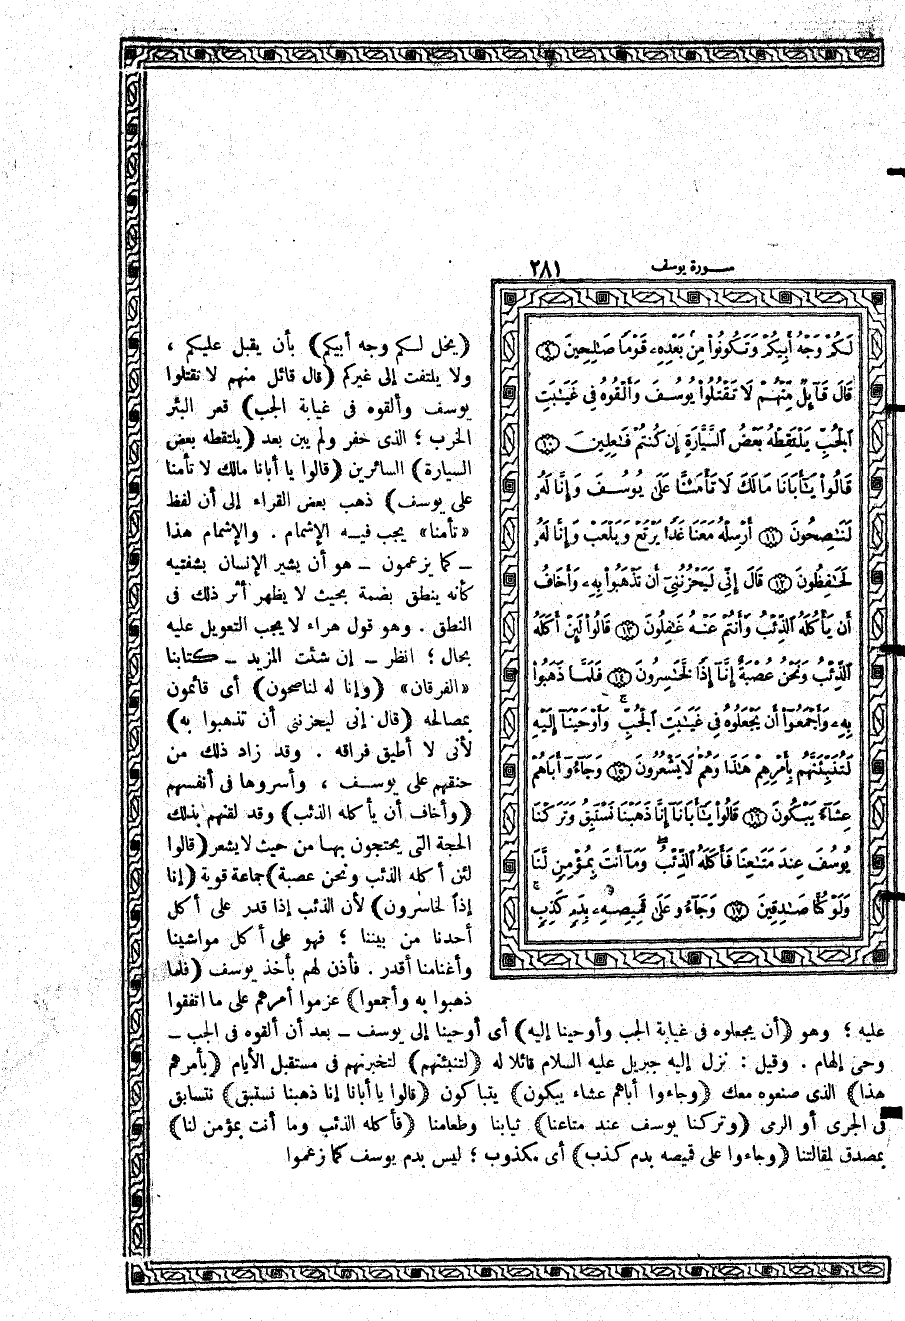 سورة يوسف ٢٨١
لَكُمْ وَجْهُ أَبِيكُمْ وَتَكُونُوا۟ مِنۢ بَعْدِهِۦ قَوْمًا صَٰلِحِينَ ﴿٩﴾
قَالَ قَآئِلٌ مِّنْهُمْ لَا تَقْتُلُوا۟ يُوسُفَ وَأَلْقُوهُ فِى غَيَٰبَتِ
ٱلْجُبِّ يَلْتَقِطْهُ بَعْضُ ٱلسَّيَّارَةِ إِن كُنتُمْ فَٰعِلِينَ ﴿١٠﴾
قَالُوا۟ يَٰٓأَبَانَا مَالَكَ لَا تَأْمَ۫نَّا عَلَىٰ يُوسُفَ وَإِنَّا لَهُۥ
لَنَٰصِحُونَ ﴿١١﴾ أَرْسِلْهُ مَعَنَا غَدًا يَرْتَعْ وَيَلْعَبْ وَإِنَّا لَهُۥ
لَحَٰفِظُونَ ﴿١٢﴾ قَالَ إِنِّى لَيَحْزُنُنِىٓ أَن تَذْهَبُوا۟ بِهِۦ وَأَخَافُ
أَن يَأْكُلَهُ ٱلذِّئْبُ وَأَنتُمْ عَنْهُ غَٰفِلُونَ ﴿١٣﴾ قَالُوا۟ لَئِنْ أَكَلَهُ
ٱلذِّئْبُ وَنَحْنُ عُصْبَةٌ إِنَّآ إِذًا لَّخَٰسِرُونَ ﴿١٤﴾ فَلَمَّا ذَهَبُوا۟
بِهِۦ وَأَجْمَعُوٓا۟ أَن يَجْعَلُوهُ فِى غَيَٰبَتِ ٱلْجُبِّ ۚ وَأَوْحَيْنَآ إِلَيْهِ
لَتُنَبِّئَنَّهُم بِأَمْرِهِمْ هَٰذَا وَهُمْ لَا يَشْعُرُونَ ﴿١٥﴾ وَجَآءُوٓ أَبَاهُمْ
عِشَآءً يَبْكُونَ ﴿١٦﴾ قَالُوا۟ يَٰٓأَبَانَآ إِنَّا ذَهَبْنَا نَسْتَبِقُ وَتَرَكْنَا
يُوسُفَ عِندَ مَتَٰعِنَا فَأَكَلَهُ ٱلذِّئْبُ ۖ وَمَآ أَنتَ بِمُؤْمِنٍ لَّنَا
وَلَوْ كُنَّا صَٰدِقِينَ ﴿١٧﴾ وَجَآءُو عَلَىٰ قَمِيصِهِۦ بِدَمٍ كَذِبٍ ۚ
(يخل لكم وجه أبيكم) بأن يقبل عليكم ،
ولا يلتفت إلى غيركم (قال قائل منهم لا تقتلوا
يوسف وألقوه فى غيابة الجب) قعر البئر
الخرب ؛ الذى حفر ولم يبن بعد (يلتقطه بعض
السيارة) السائرين (قالوا يا أبانا مالك لا تأمنا
على يوسف) ذهب بعض القراء إلى أن لفظ
«تأمنا» يجب فيه الإشمام . والإشمام هذا
ـ كما يزعمون ـ هو أن يشير الإنسان بشفتيه
كأنه ينطق بضمة بحيث لا يظهر أثر ذلك فى
النطق . وهو قول هراء لا يجب التعويل عليه
بحال ؛ انظر ـ إن شئت المزيد ـ كتابنا
«الفرقان» (وإنا له لناصحون) أى قائمون
بمصالحه (قال إنى ليحزننى أن تذهبوا به)
لأنى لا أطيق فراقه . وقد زاد ذلك من
حنقهم على يوسف ، وأسروها فى أنفسهم
(وأخاف أن يأكله الذئب) وقد لقنهم بذلك
الحجة التى يحتجون بها من حيث لا يشعر (قالوا
لئن أكله الذئب ونحن عصبة) جماعة قوية (إنا
إذاً لخاسرون) لأن الذئب إذا قدر على أكل
أحدنا من بيننا ؛ فهو على أكل مواشينا
وأغنامنا أقدر . فأذن لهم بأخذ يوسف (فلما
ذهبوا به وأجمعوا) عزموا أمرهم على ما اتفقوا
عليه ؛ وهو (أن يجعلوه فى غيابة الجب وأوحينا إليه) أى أوحينا إلى يوسف ـ بعد أن ألقوه فى الجب ـ
وحى إلهام . وقيل : نزل إليه جبريل عليه السلام قائلا له (لتنبئنهم) لتخبرنهم فى مستقبل الأيام (بأمرهم
هذا) الذى صنعوه معك (وجاءوا أباهم عشاء يبكون) يتباكون (قالوا يا أبانا إنا ذهبنا نستبق) نتسابق
فى الجرى أو الرمى (وتركنا يوسف عند متاعنا) ثيابنا وطعامنا (فأكله الذئب وما أنت بمؤمن لنا)
بمصدق لمقالتنا (وجاءوا على قميصه بدم كذب) أى مكذوب ؛ ليس بدم يوسف كما زعموا